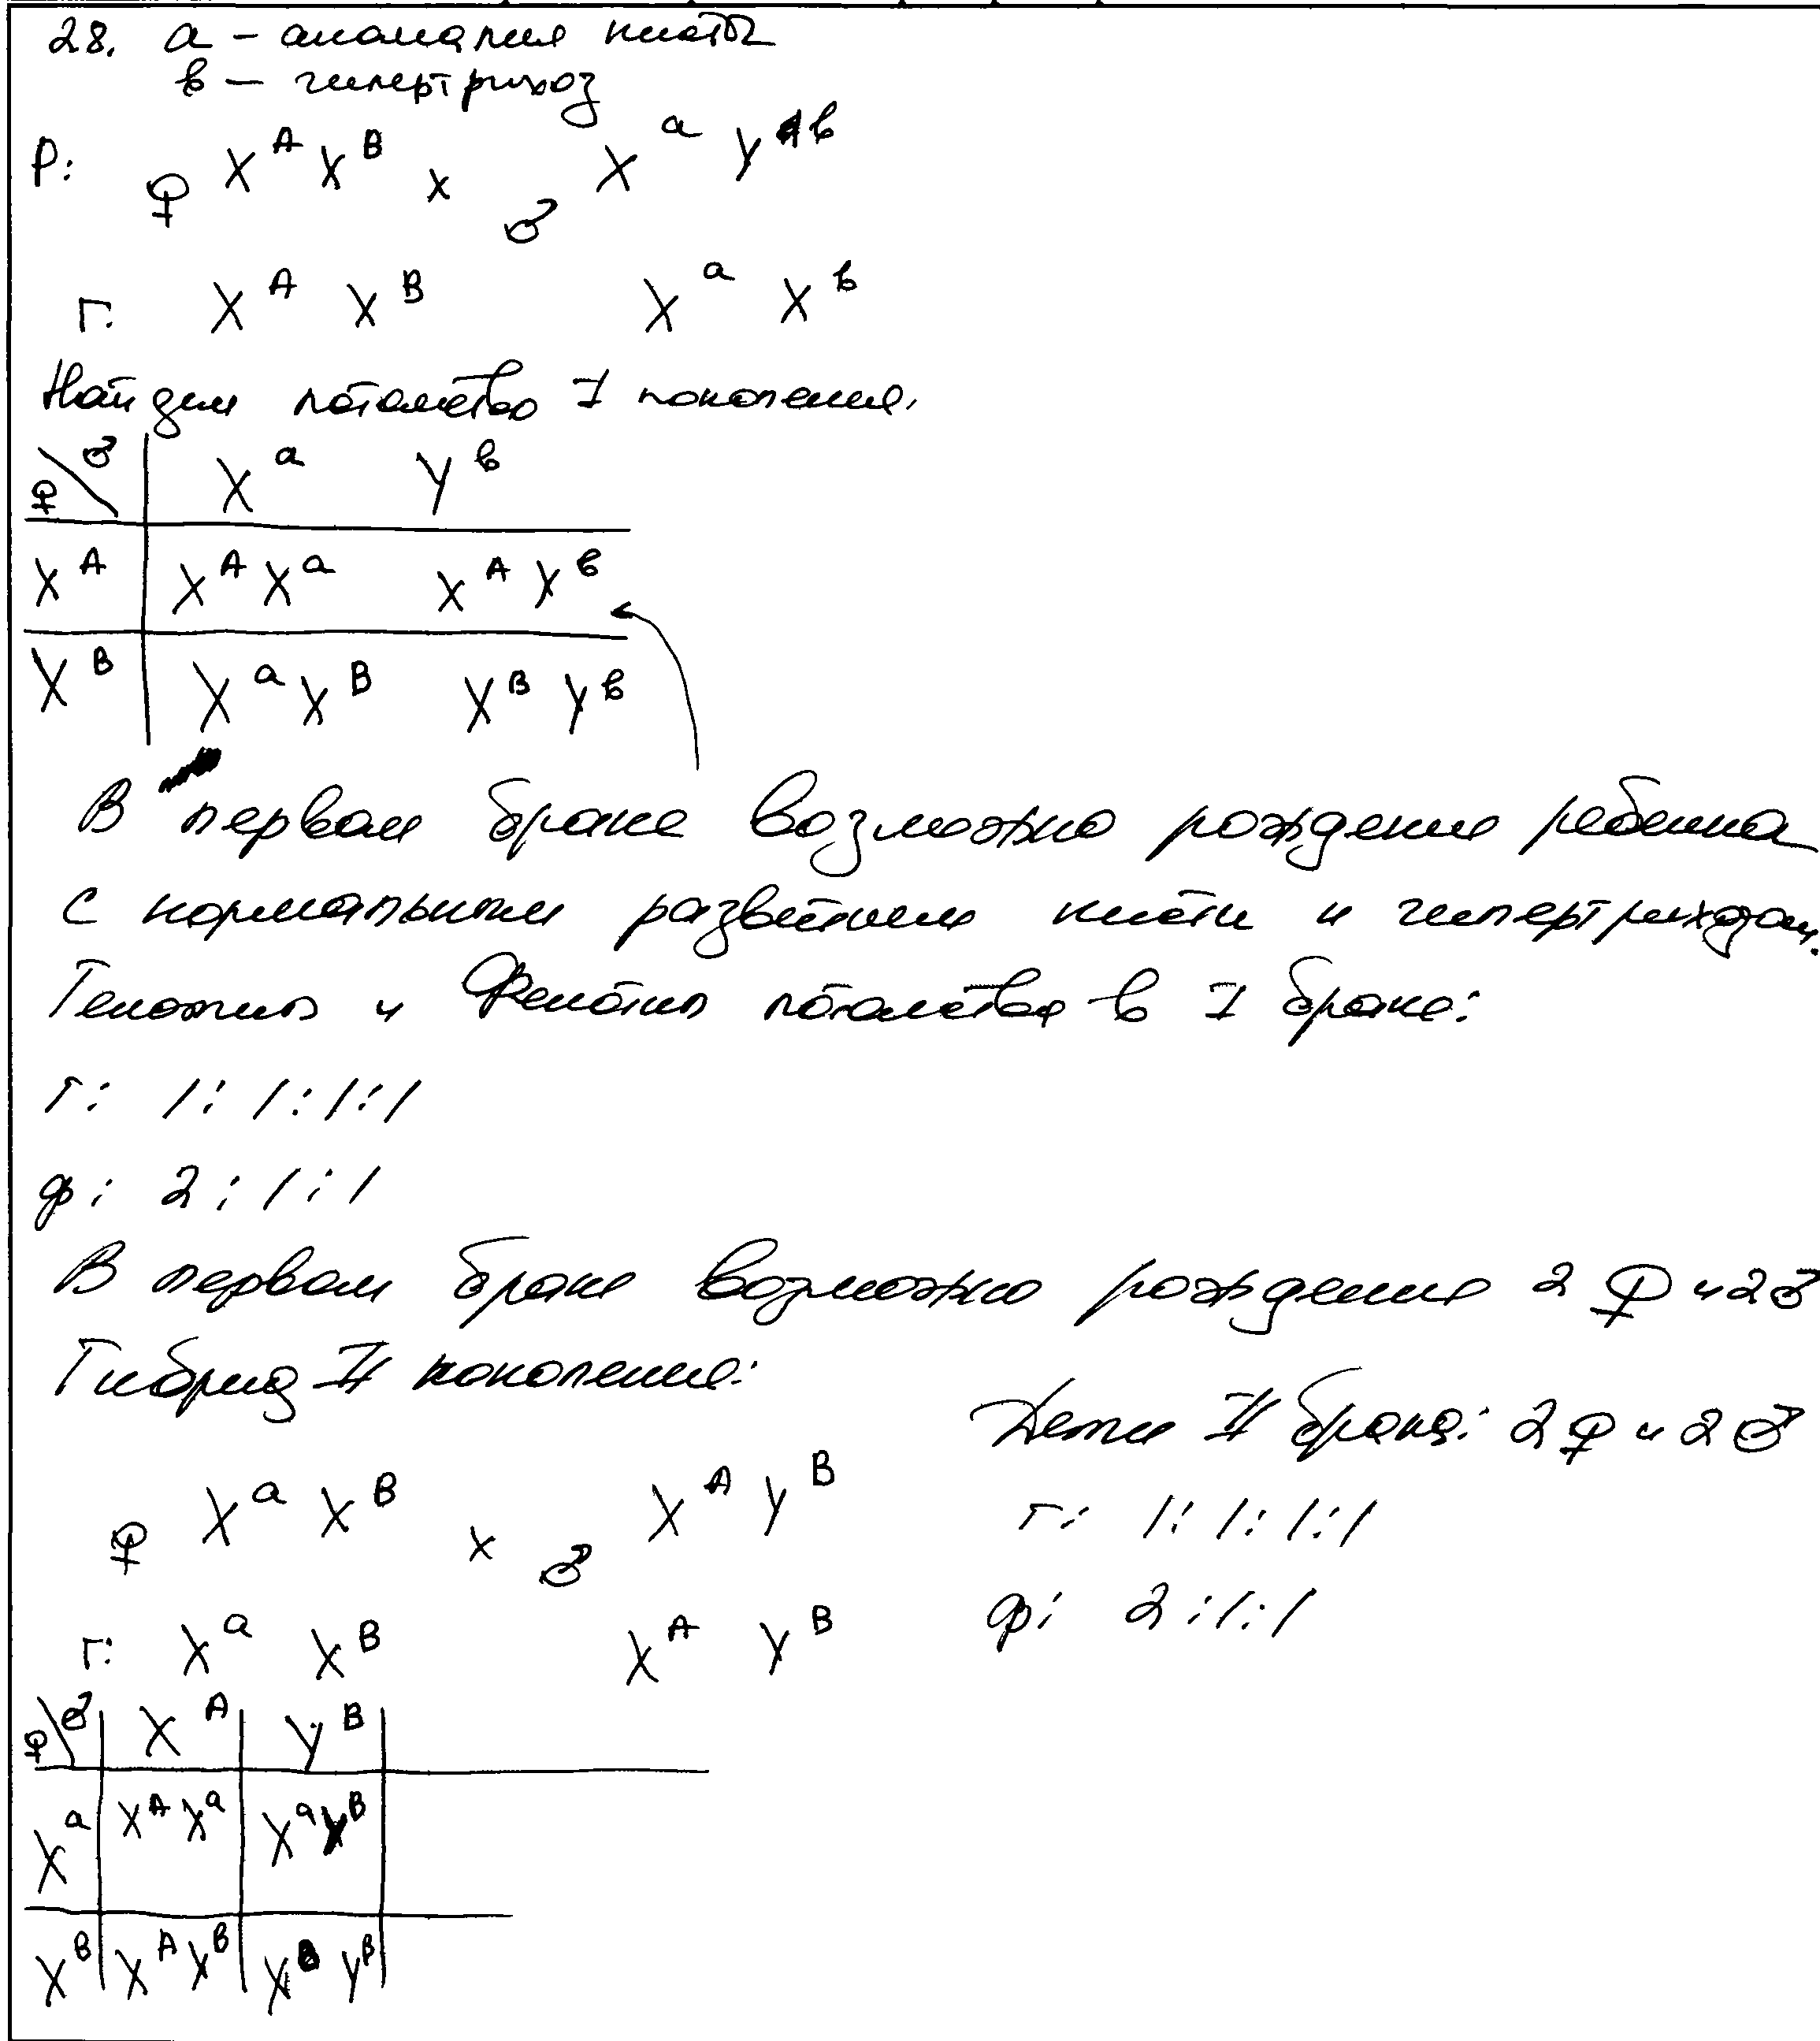 28. а – аномалия кисти
в – гипертрихоз
Р: ♀ X^A X^B x ♂ X^a Y^в
Г: X^A X^B X^a X^в
Найдем потомство I поколения.
♀\♂ X^a Y^в
X^A X^A X^a X^A X^в
X^B X^a X^B X^B Y^в
В первом браке возможно рождение ребенка
с нормальным развитием кисти и гипертрихозом.
Генотип и Фенотип потомства в I браке:
г: 1:1:1:1
ф: 2:1:1
В первом браке возможно рождение 2 ♀ и 2 ♂
Гибрид II поколения:
Дети II брака: 2 ♀ и 2 ♂
♀ X^a X^B x ♂ X^A Y^B
г: 1:1:1:1
Г: X^a X^B X^A Y^B
ф: 2:1:1
♀\♂ X^A Y^B
X^a X^A X^a X^a Y^B
X^B X^A X^B X^B Y^B